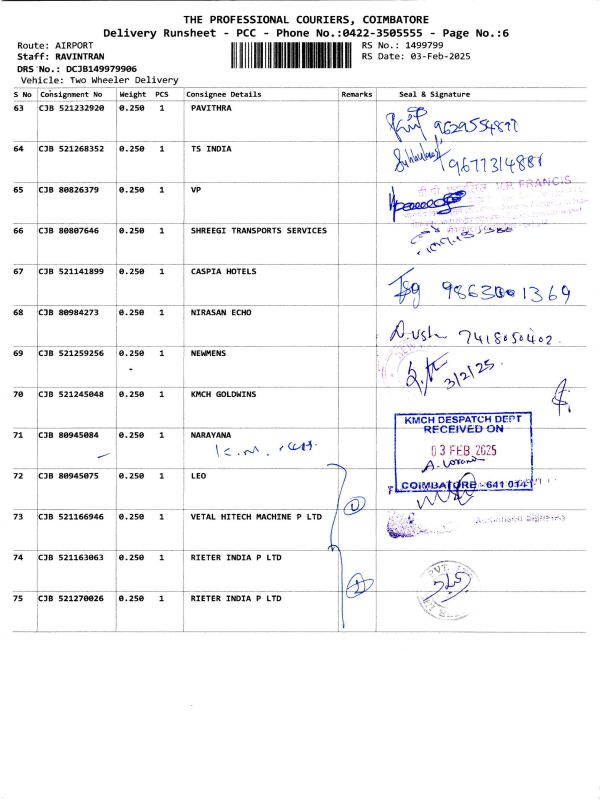 THE PROFESSIONAL COURIERS, COIMBATORE
Delivery Runsheet - PCC - Phone No.:0422-3505555 - Page No.:6
Route: AIRPORT
RS No.: 1499799
Staff: RAVINTRAN
RS Date: 03-Feb-2025
DRS No.: DCJB149979906
Vehicle: Two Wheeler Delivery
S No Consignment No Weight PCS Consignee Details Remarks Seal & Signature
63 CJB 521232920 0.250 1 PAVITHRA
9629554877
64 CJB 521268352 0.250 1 TS INDIA
9677314881
65 CJB 80826379 0.250 1 VP
V.P. FRANCIS
66 CJB 80807646 0.250 1 SHREEGI TRANSPORTS SERVICES
67 CJB 521141899 0.250 1 CASPIA HOTELS
1369
68 CJB 80984273 0.250 1 NIRASAN ECHO
7418050402.
69 CJB 521259256 0.250 1 NEWMENS
-
3/2/25.
70 CJB 521245048 0.250 1 KMCH GOLDWINS
KMCH DESPATCH DEPT
RECEIVED ON
03 FEB 2025
COIMBATORE - 641 014
71 CJB 80945084 0.250 1 NARAYANA
72 CJB 80945075 0.250 1 LEO
73 CJB 521166946 0.250 1 VETAL HITECH MACHINE P LTD
Authorised Signatory
74 CJB 521163063 0.250 1 RIETER INDIA P LTD
75 CJB 521270026 0.250 1 RIETER INDIA P LTD